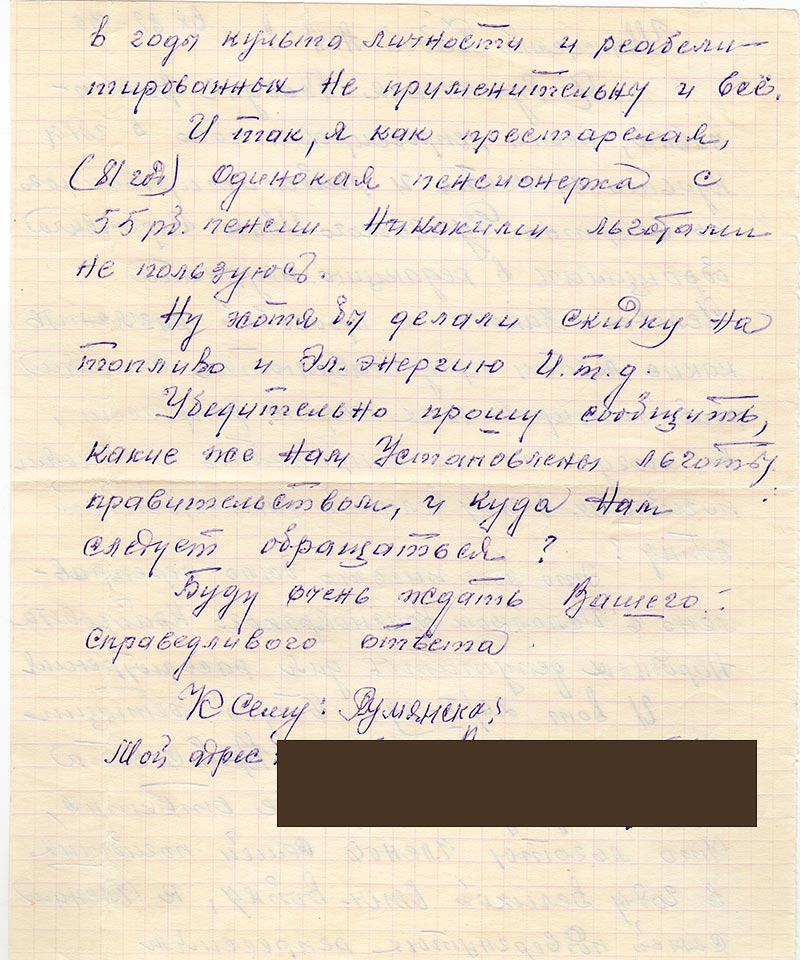 в годы культа личности и реабели-
тированных не применительну и всё.
И так, я как престарелая,
(81 год) одинокая пенсионерка с
55 рб. пенсии никакими льготами
не пользуюсь.
Ну хотя бы делали скидку на
топливо и эл. энергию и.т.д
Убедительно прошу сообщить,
какие же нам установлены льготы
правительством, и куда нам
следует обращаться?
Буду очень ждать Вашего
справедливого ответа.
К сему: Румянска
Мой адрес: